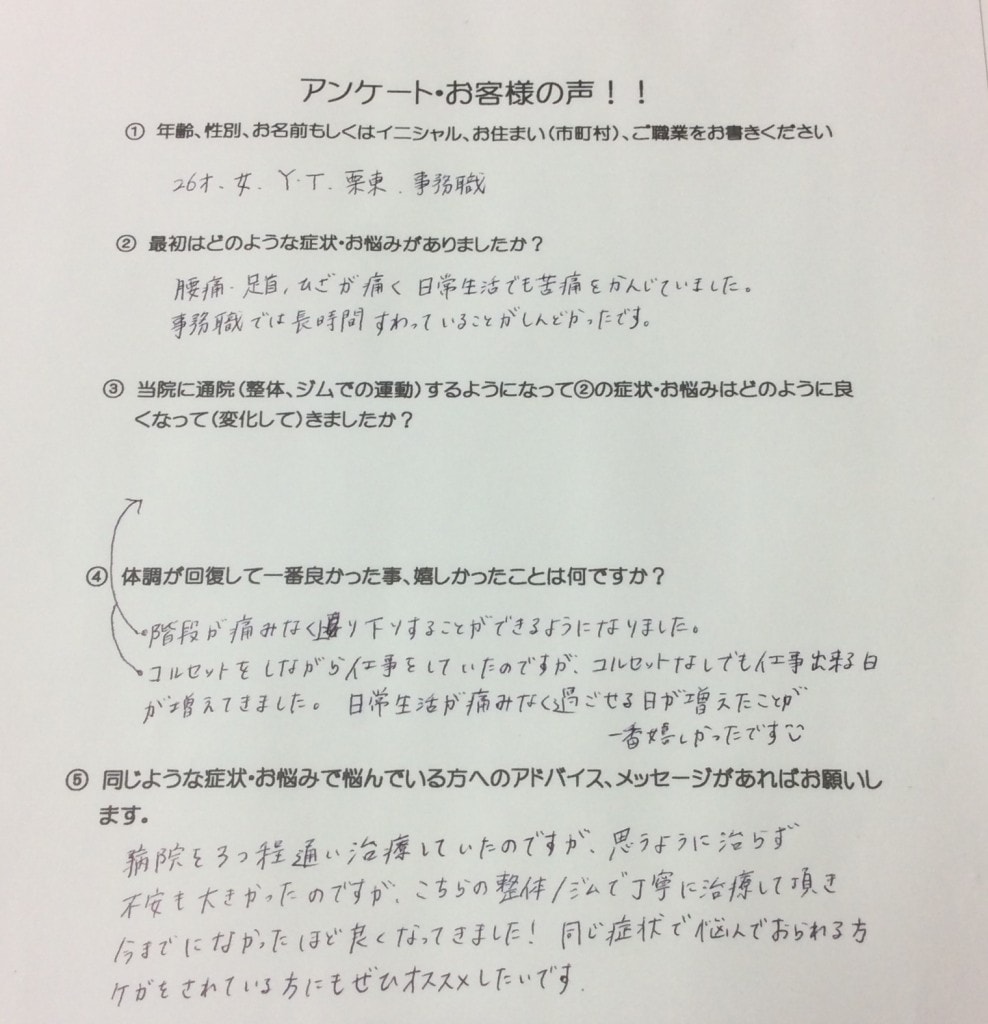 アンケート・お客様の声！！
① 年齢、性別、お名前もしくはイニシャル、お住まい（市町村）、ご職業をお書きください
26才. 女. Y・T. 栗東. 事務職
② 最初はどのような症状・お悩みがありましたか？
腰痛・足首, ひざが痛く 日常生活でも苦痛をかんじていました。
事務職では長時間すわっていることがしんどかったです。
③ 当院に通院（整体、ジムでの運動）するようになって②の症状・お悩みはどのように良
くなって（変化して）きましたか？
④ 体調が回復して一番良かった事、嬉しかったことは何ですか？
・階段が痛みなく上り下りすることができるようになりました。
・コルセットをしながら仕事をしていたのですが、コルセットなしでも仕事出来る日
が増えてきました。 日常生活が痛みなく過ごせる日が増えたことが
一番嬉しかったです
⑤ 同じような症状・お悩みで悩んでいる方へのアドバイス、メッセージがあればお願いし
ます。
病院を3つ程通い治療していたのですが、思うように治らず
不安も大きかったのですが、こちらの整体/ジムで丁寧に治療して頂き
今までになかったほど良くなってきました！ 同じ症状で悩んでおられる方
ケガをされている方にもぜひオススメしたいです.